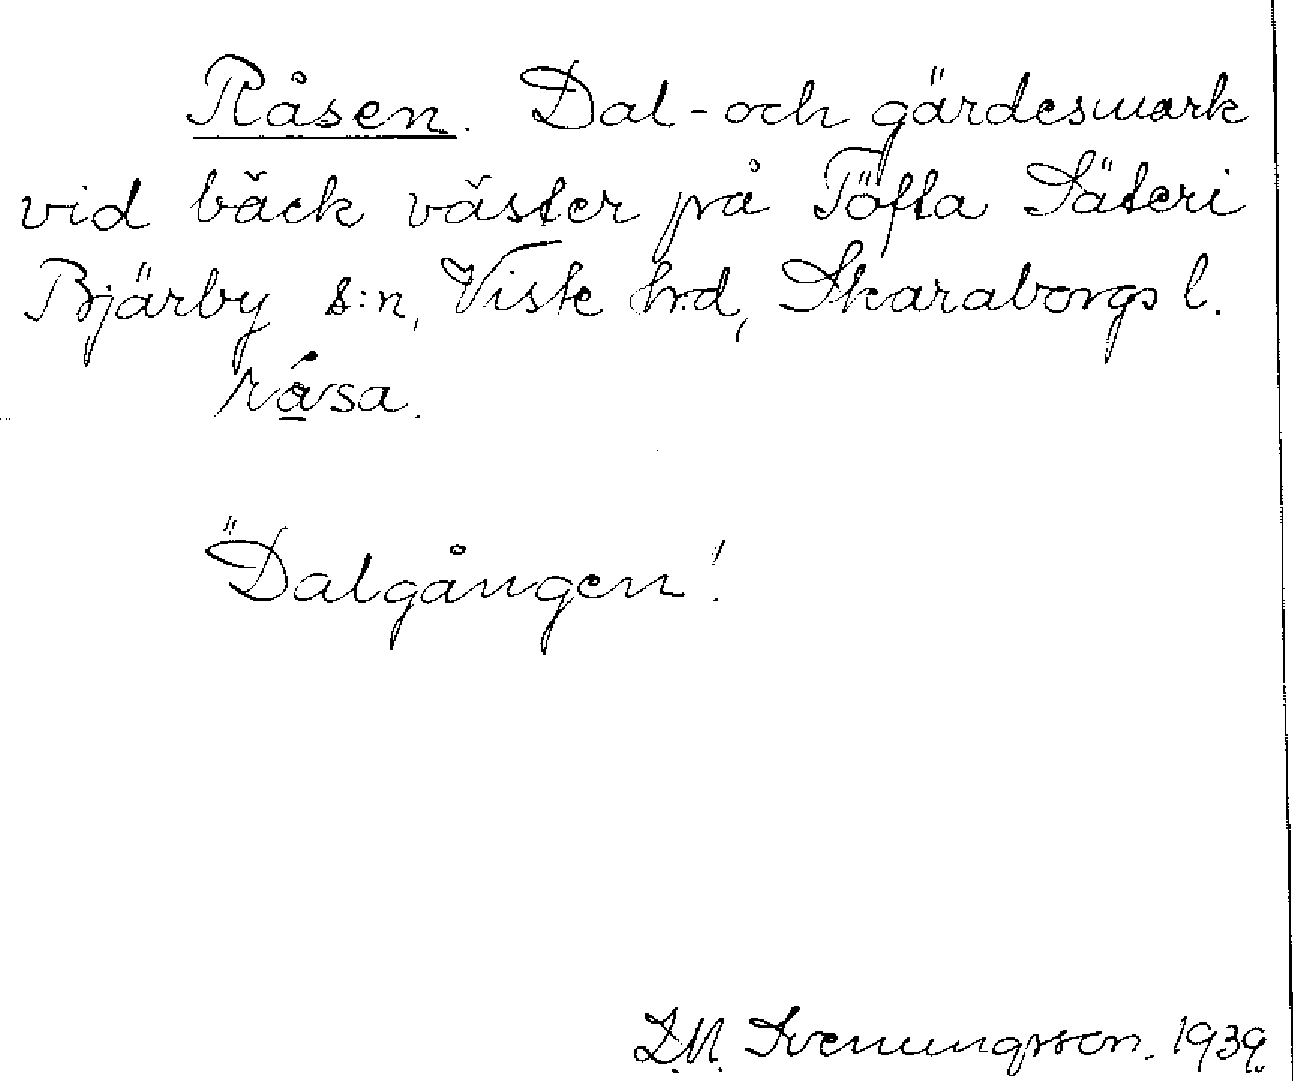 Råsen. Dal- och gärdesmark
vid bäck väster på Töfta Säteri
Bjärby s:n, Viste hrd, Skaraborgs l.
råsa.
"Dalgången!
D.M. Svenungsson. 1939.